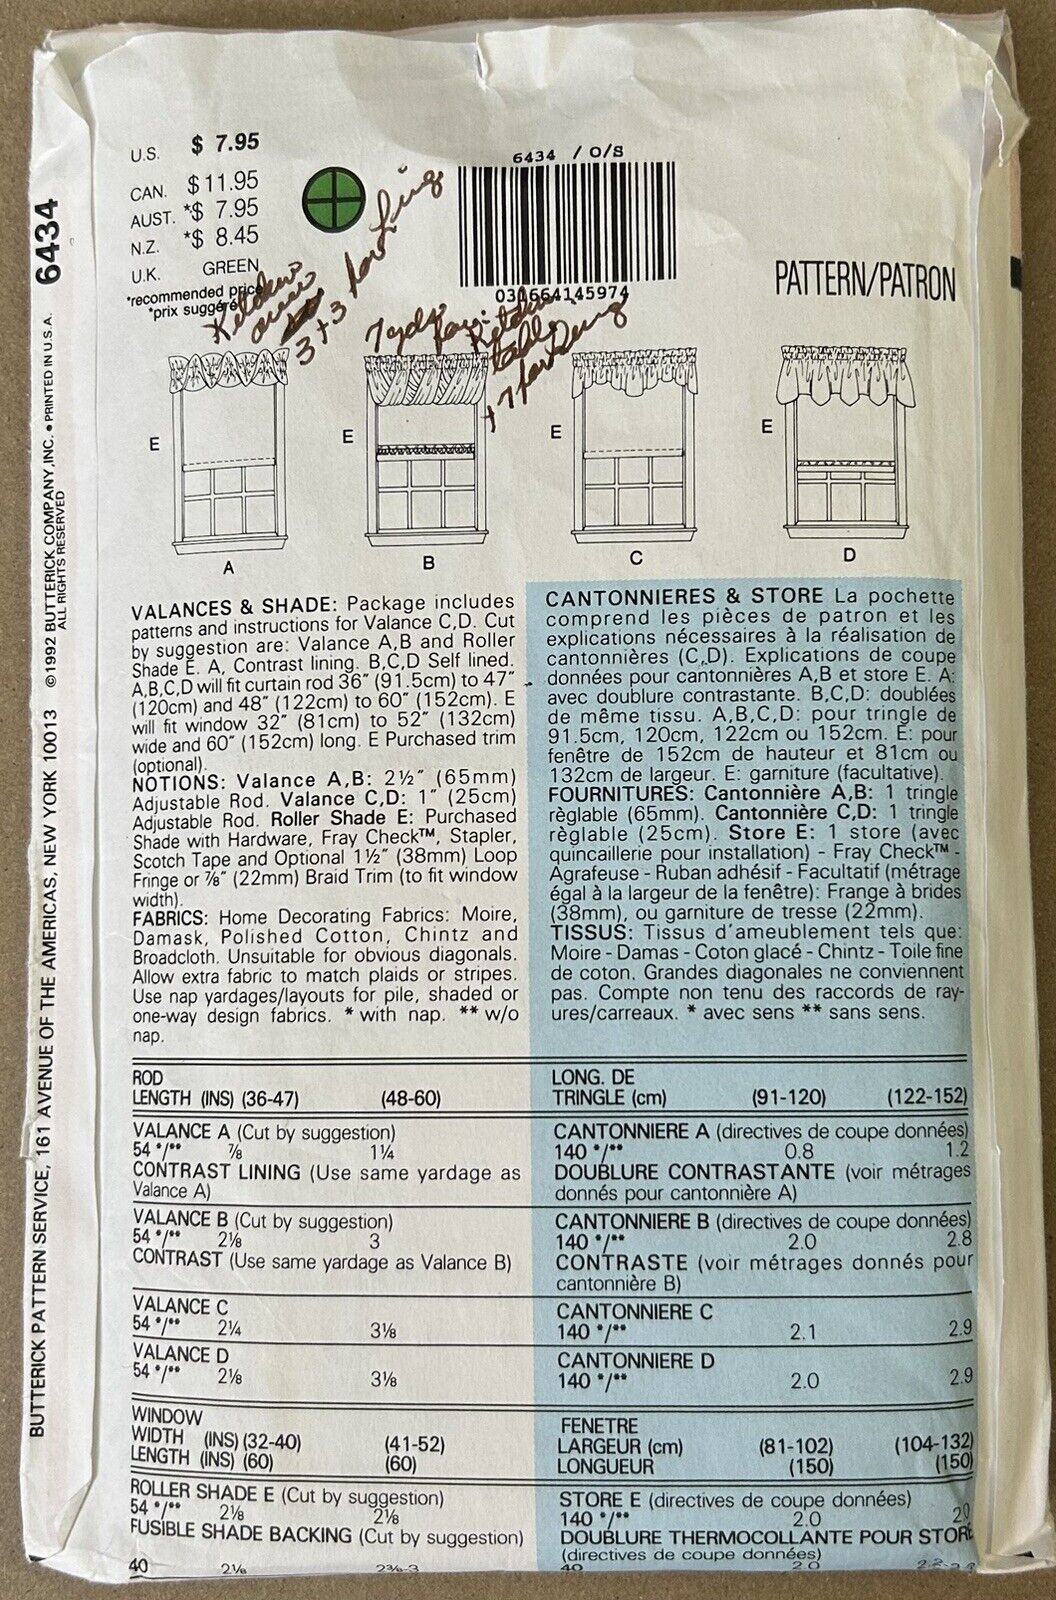 U.S. $ 7.95
CAN. $ 11.95
AUST. *$ 7.95
N.Z. *$ 8.45
U.K. GREEN
*recommended price
*prix suggéré
6434 / O/S
031664145974
PATTERN/PATRON
Kitchen
over
3+3 for Lining
7 yds for: Kitchen
table
+ 7 for Lining
E
E
E
E
A
B
C
D
VALANCES & SHADE: Package includes
patterns and instructions for Valance C,D. Cut
by suggestion are: Valance A,B and Roller
Shade E. A, Contrast lining. B,C,D Self lined.
A,B,C,D will fit curtain rod 36" (91.5cm) to 47"
(120cm) and 48" (122cm) to 60" (152cm). E
will fit window 32" (81cm) to 52" (132cm)
wide and 60" (152cm) long. E Purchased trim
(optional).
NOTIONS: Valance A,B: 2½" (65mm)
Adjustable Rod. Valance C,D: 1" (25cm)
Adjustable Rod. Roller Shade E: Purchased
Shade with Hardware, Fray Check™, Stapler,
Scotch Tape and Optional 1½" (38mm) Loop
Fringe or ⅞" (22mm) Braid Trim (to fit window
width).
FABRICS: Home Decorating Fabrics: Moire,
Damask, Polished Cotton, Chintz and
Broadcloth. Unsuitable for obvious diagonals.
Allow extra fabric to match plaids or stripes.
Use nap yardages/layouts for pile, shaded or
one-way design fabrics. * with nap. ** w/o
nap.
CANTONNIERES & STORE La pochette
comprend les pièces de patron et les
explications nécessaires à la réalisation de
cantonnières (C,D). Explications de coupe
données pour cantonnières A,B et store E. A:
avec doublure contrastante. B,C,D: doublées
de même tissu. A,B,C,D: pour tringle de
91.5cm, 120cm, 122cm ou 152cm. E: pour
fenêtre de 152cm de hauteur et 81cm ou
132cm de largeur. E: garniture (facultative).
FOURNITURES: Cantonnière A,B: 1 tringle
règlable (65mm). Cantonnière C,D: 1 tringle
règlable (25cm). Store E: 1 store (avec
quincaillerie pour installation) - Fray Check™ -
Agrafeuse - Ruban adhésif - Facultatif (métrage
égal à la largeur de la fenêtre): Frange à brides
(38mm), ou garniture de tresse (22mm).
TISSUS: Tissus d'ameublement tels que:
Moire - Damas - Coton glacé - Chintz - Toile fine
de coton. Grandes diagonales ne conviennent
pas. Compte non tenu des raccords de ray-
ures/carreaux. * avec sens ** sans sens.
ROD
LENGTH (INS) (36-47) (48-60)
VALANCE A (Cut by suggestion)
54 */** ⅞ 1¼
CONTRAST LINING (Use same yardage as
Valance A)
VALANCE B (Cut by suggestion)
54 */** 2⅛ 3
CONTRAST (Use same yardage as Valance B)
VALANCE C
54 */** 2¼ 3⅛
VALANCE D
54 */** 2⅛ 3⅛
WINDOW
WIDTH (INS) (32-40) (41-52)
LENGTH (INS) (60) (60)
ROLLER SHADE E (Cut by suggestion)
54 */** 2⅛ 2⅛
FUSIBLE SHADE BACKING (Cut by suggestion)
40 2⅛ 2⅜-3
LONG. DE
TRINGLE (cm) (91-120) (122-152)
CANTONNIERE A (directives de coupe données)
140 */** 0.8 1.2
DOUBLURE CONTRASTANTE (voir métrages
donnés pour cantonnière A)
CANTONNIERE B (directives de coupe données)
140 */** 2.0 2.8
CONTRASTE (voir métrages donnés pour
cantonnière B)
CANTONNIERE C
140 */** 2.1 2.9
CANTONNIERE D
140 */** 2.0 2.9
FENETRE
LARGEUR (cm) (81-102) (104-132)
LONGUEUR (150) (150)
STORE E (directives de coupe données)
140 */** 2.0 2.0
DOUBLURE THERMOCOLLANTE POUR STORE
(directives de coupe données)
40 2.0
BUTTERICK PATTERN SERVICE, 161 AVENUE OF THE AMERICAS, NEW YORK 10013 ©1992 BUTTERICK COMPANY, INC. • PRINTED IN U.S.A. 6434
ALL RIGHTS RESERVED